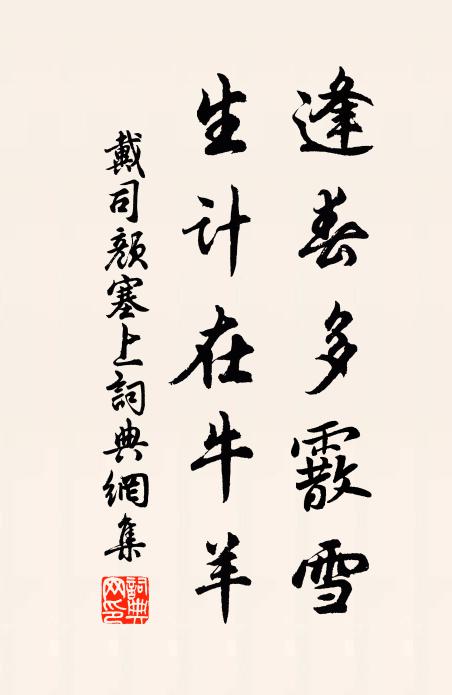 逢春多霰雪
生计在牛羊
戴司顔塞上詞典網集
詞典网印